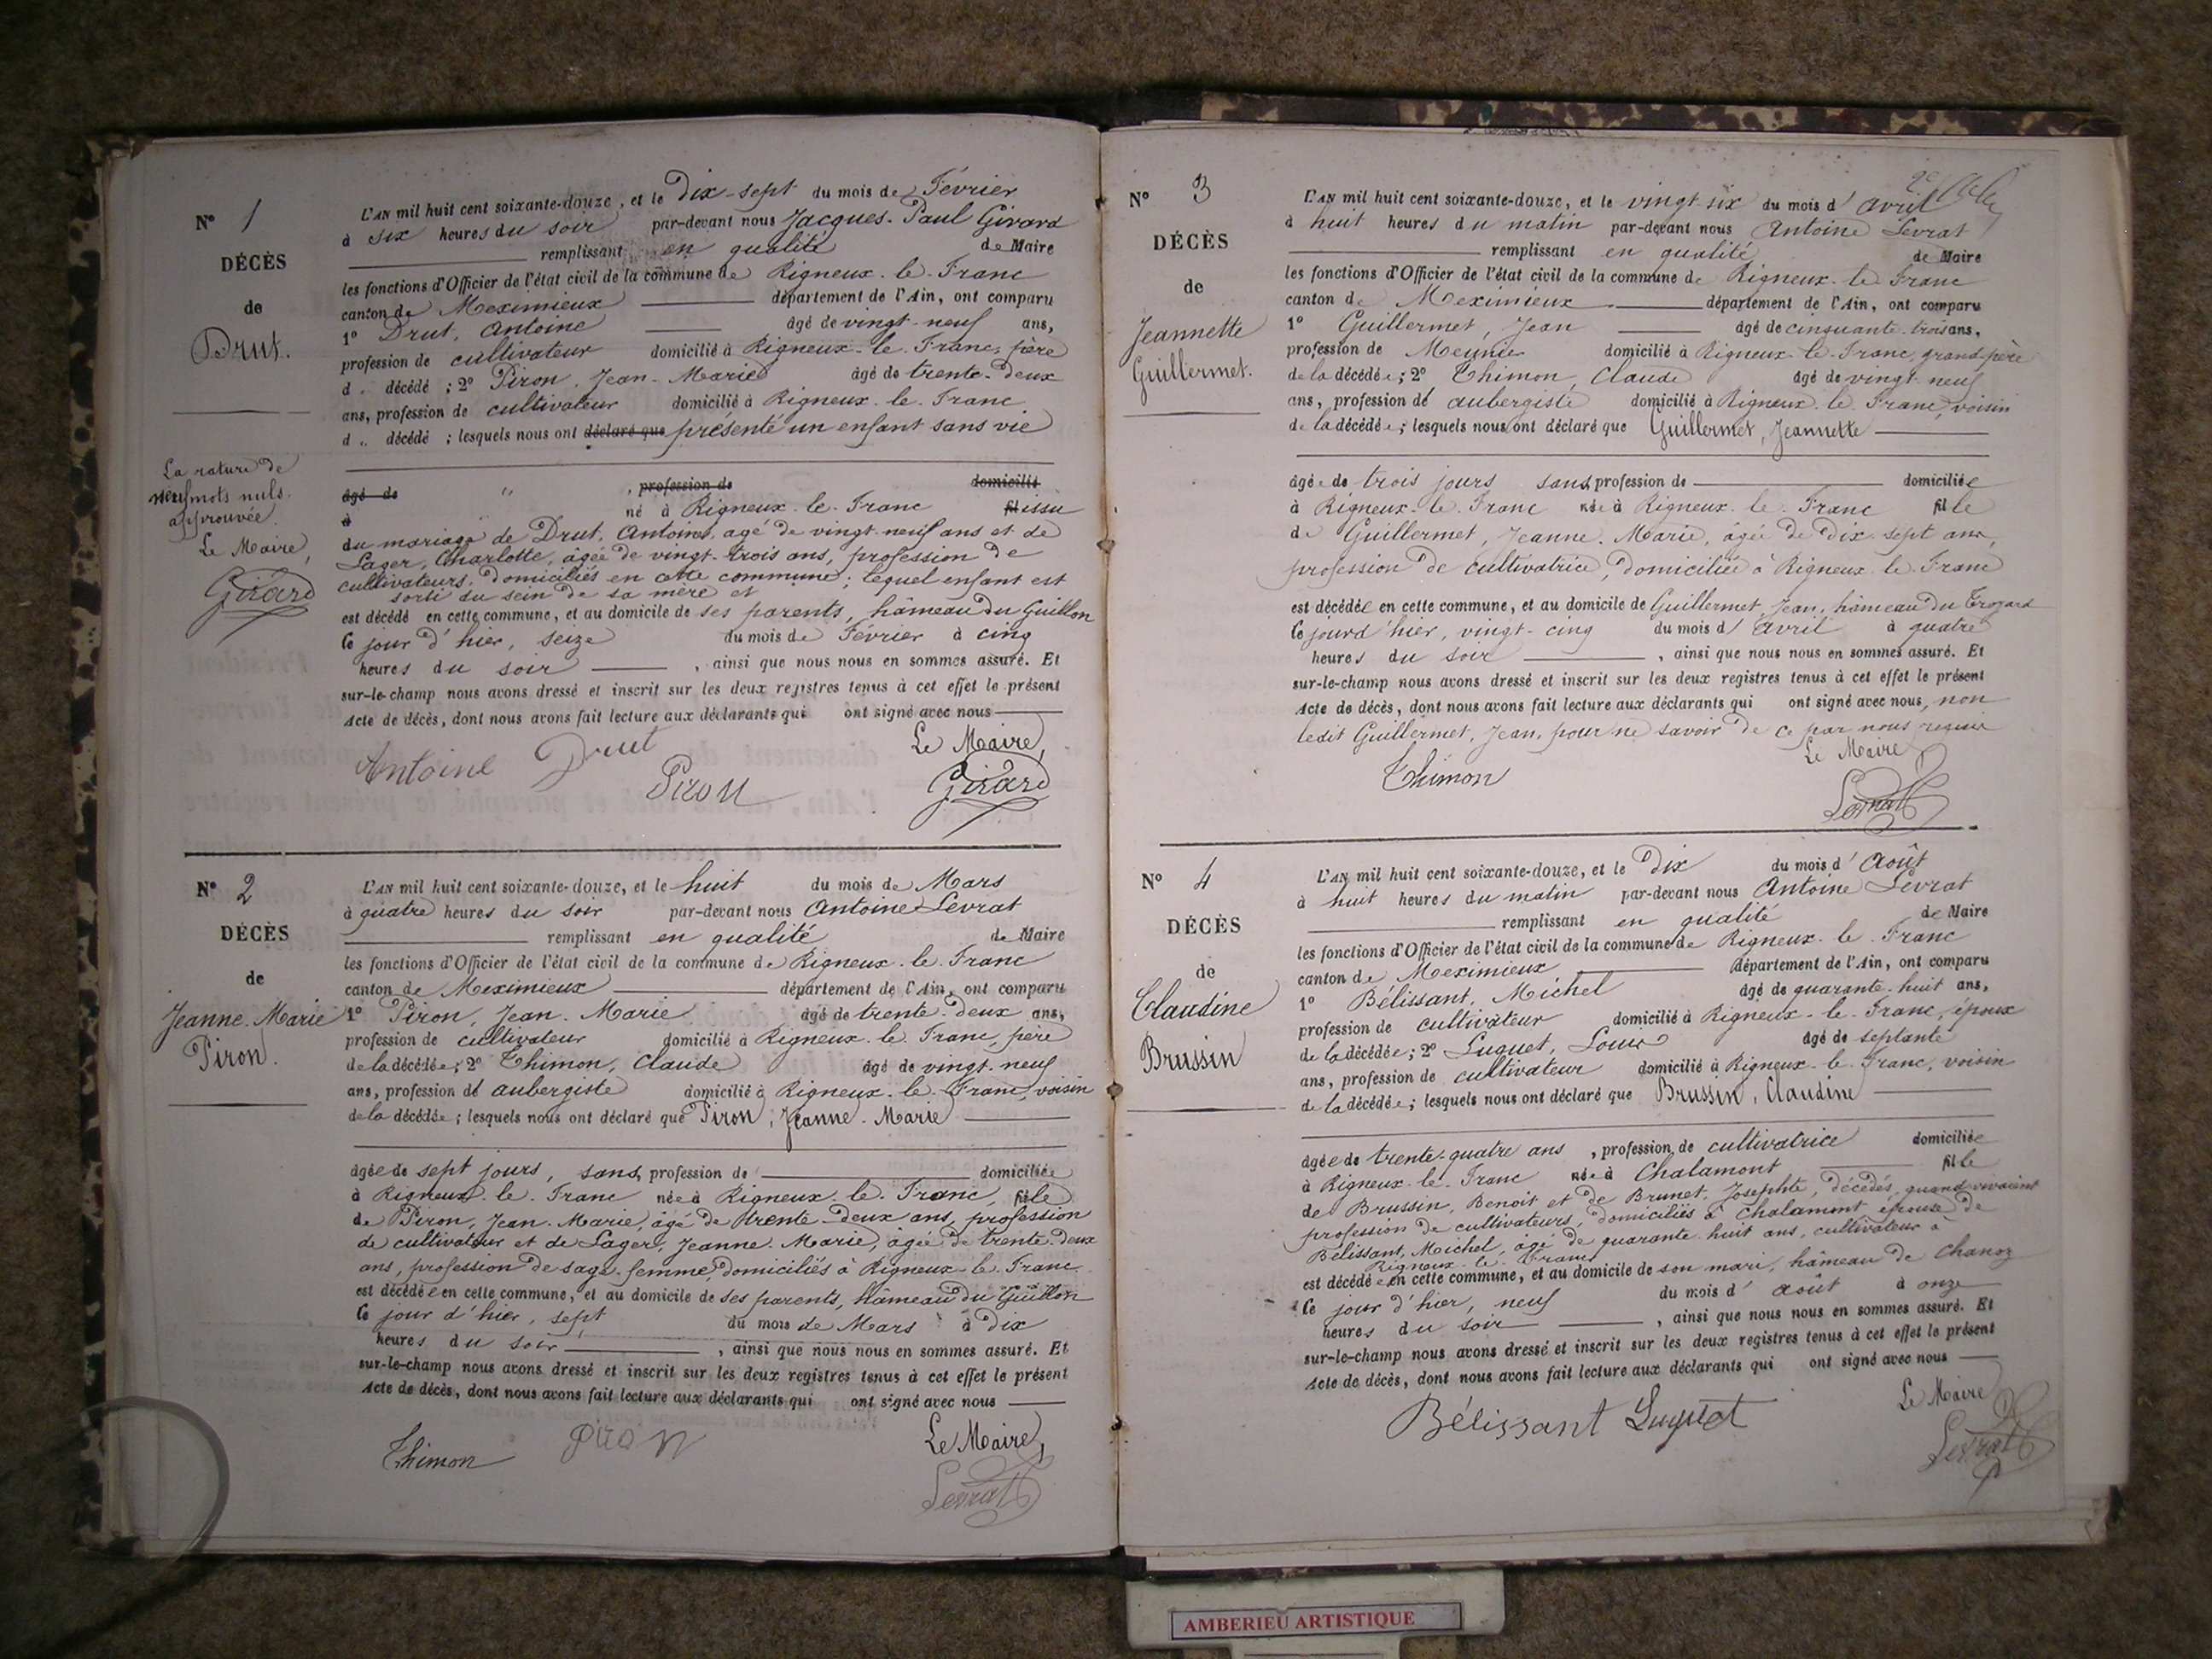 N° 1
DÉCÈS
de
Drut.
La rature de
neuf mots nuls
approuvée.
Le Maire,
Girard
L'AN mil huit cent soixante-douze, et le Dix-sept du mois de Février
à six heures du soir par-devant nous Jacques-Paul Girard
remplissant en qualité de Maire
les fonctions d'Officier de l'état civil de la commune de Rigneux-le-Franc
canton de Meximieux département de l'Ain, ont comparu
1° Drut, Antoine âgé de vingt-neuf ans,
profession de cultivateur domicilié à Rigneux-le-Franc, père
d " décédé ; 2° Piron, Jean-Marie âgé de trente-deux
ans, profession de cultivateur domicilié à Rigneux-le-Franc
d " décédé ; lesquels nous ont déclaré que présenté un enfant sans vie
âgé de " , profession de domicilié
à né à Rigneux-le-Franc fil issu
du mariage de Drut, Antoine, agé de vingt-neuf ans et de
Lager, Charlotte, âgée de vingt-trois ans, profession de
cultivateurs, domiciliés en cette commune ; lequel enfant est
sorti du sein de sa mère et
est décédé en cette commune, et au domicile de ses parents, hâmeau du Guillon
le jour d'hier, seize du mois de Février à cinq
heures du soir , ainsi que nous nous en sommes assuré. Et
sur-le-champ nous avons dressé et inscrit sur les deux registres tenus à cet effet le présent
Acte de décès, dont nous avons fait lecture aux déclarants qui ont signé avec nous
Le Maire,
Antoine Drut Piron Girard
N° 2
DÉCÈS
de
Jeanne-Marie
Piron.
L'AN mil huit cent soixante-douze, et le huit du mois de Mars
à quatre heures du soir par-devant nous Antoine Levrat
remplissant en qualité de Maire
les fonctions d'Officier de l'état civil de la commune de Rigneux-le-Franc
canton de Meximieux département de l'Ain, ont comparu
1° Piron, Jean-Marie âgé de trente-deux ans,
profession de cultivateur domicilié à Rigneux-le-Franc, père
de la décédée ; 2° Thimon, Claude âgé de vingt-neuf
ans, profession de aubergiste domicilié à Rigneux-le-Franc, voisin
de la décédée ; lesquels nous ont déclaré que Piron, Jeanne-Marie
âgée de sept jours, sans profession de domiciliée
à Rigneux-le-Franc née à Rigneux-le-Franc, fille
de Piron, Jean-Marie, âgé de trente-deux ans, profession
de cultivateur et de Lager, Jeanne-Marie, âgée de trente-deux
ans, profession de sage-femme, domiciliés à Rigneux-le-Franc
est décédée en cette commune, et au domicile de ses parents, hâmeau du Guillon
le jour d'hier, sept du mois de Mars à dix
heures du soir , ainsi que nous nous en sommes assuré. Et
sur-le-champ nous avons dressé et inscrit sur les deux registres tenus à cet effet le présent
Acte de décès, dont nous avons fait lecture aux déclarants qui ont signé avec nous
Thimon Piron Le Maire,
Levrat
N° 3
DÉCÈS
de
Jeannette
Guillermet.
L'AN mil huit cent soixante-douze, et le vingt-six du mois d' avril
à huit heures du matin par-devant nous Antoine Levrat
remplissant en qualité de Maire
les fonctions d'Officier de l'état civil de la commune de Rigneux-le-Franc
canton de Meximieux département de l'Ain, ont comparu
1° Guillermet, Jean âgé de cinquante-trois ans,
profession de Meunier domicilié à Rigneux-le-Franc, grand-père
de la décédée ; 2° Thimon, Claude âgé de vingt-neuf
ans, profession de aubergiste domicilié à Rigneux-le-Franc, voisin
de la décédée ; lesquels nous ont déclaré que Guillermet, Jeannette
âgée de trois jours sans profession de domiciliée
à Rigneux-le-Franc née à Rigneux-le-Franc fille
de Guillermet, Jeanne-Marie, âgée de Dix-sept ans,
profession de cultivatrice, domiciliée à Rigneux-le-Franc
est décédée en cette commune, et au domicile de Guillermet, Jean, hâmeau du
le jourd'hier, vingt-cinq du mois d' avril à quatre
heures du soir , ainsi que nous nous en sommes assuré. Et
sur-le-champ nous avons dressé et inscrit sur les deux registres tenus à cet effet le présent
Acte de décès, dont nous avons fait lecture aux déclarants qui ont signé avec nous, non
ledit Guillermet, Jean, pour ne savoir de ce par nous requis
Le Maire
Thimon Levrat
N° 4
DÉCÈS
de
Claudine
Brussin
L'AN mil huit cent soixante-douze, et le Dix du mois d' Août
à huit heures du matin par-devant nous Antoine Levrat
remplissant en qualité de Maire
les fonctions d'Officier de l'état civil de la commune de Rigneux-le-Franc
canton de Meximieux département de l'Ain, ont comparu
1° Bélissant, Michel âgé de quarante-huit ans,
profession de cultivateur domicilié à Rigneux-le-Franc, époux
de la décédée ; 2° Luquet, Louis âgé de septante
ans, profession de cultivateur domicilié à Rigneux-le-Franc, voisin
de la décédée ; lesquels nous ont déclaré que Brussin, Claudine
âgée de trente-quatre ans , profession de cultivatrice domiciliée
à Rigneux-le-Franc née à Chalamont fille
de Brussin, Benoit et de Brunet, Josephte, décédés, quand vivaient
profession de cultivateurs, domiciliés à Chalamont épouse de
Bélissant, Michel, âgé de quarante-huit ans, cultivateur à
Rigneux-le-Franc
est décédée en cette commune, et au domicile de son mari, hâmeau de Chanoz
le jour d'hier, neuf du mois d' août à onze
heures du soir , ainsi que nous nous en sommes assuré. Et
sur-le-champ nous avons dressé et inscrit sur les deux registres tenus à cet effet le présent
Acte de décès, dont nous avons fait lecture aux déclarants qui ont signé avec nous
Le Maire
Bélissant Luquet Levrat
AMBERIEU ARTISTIQUE